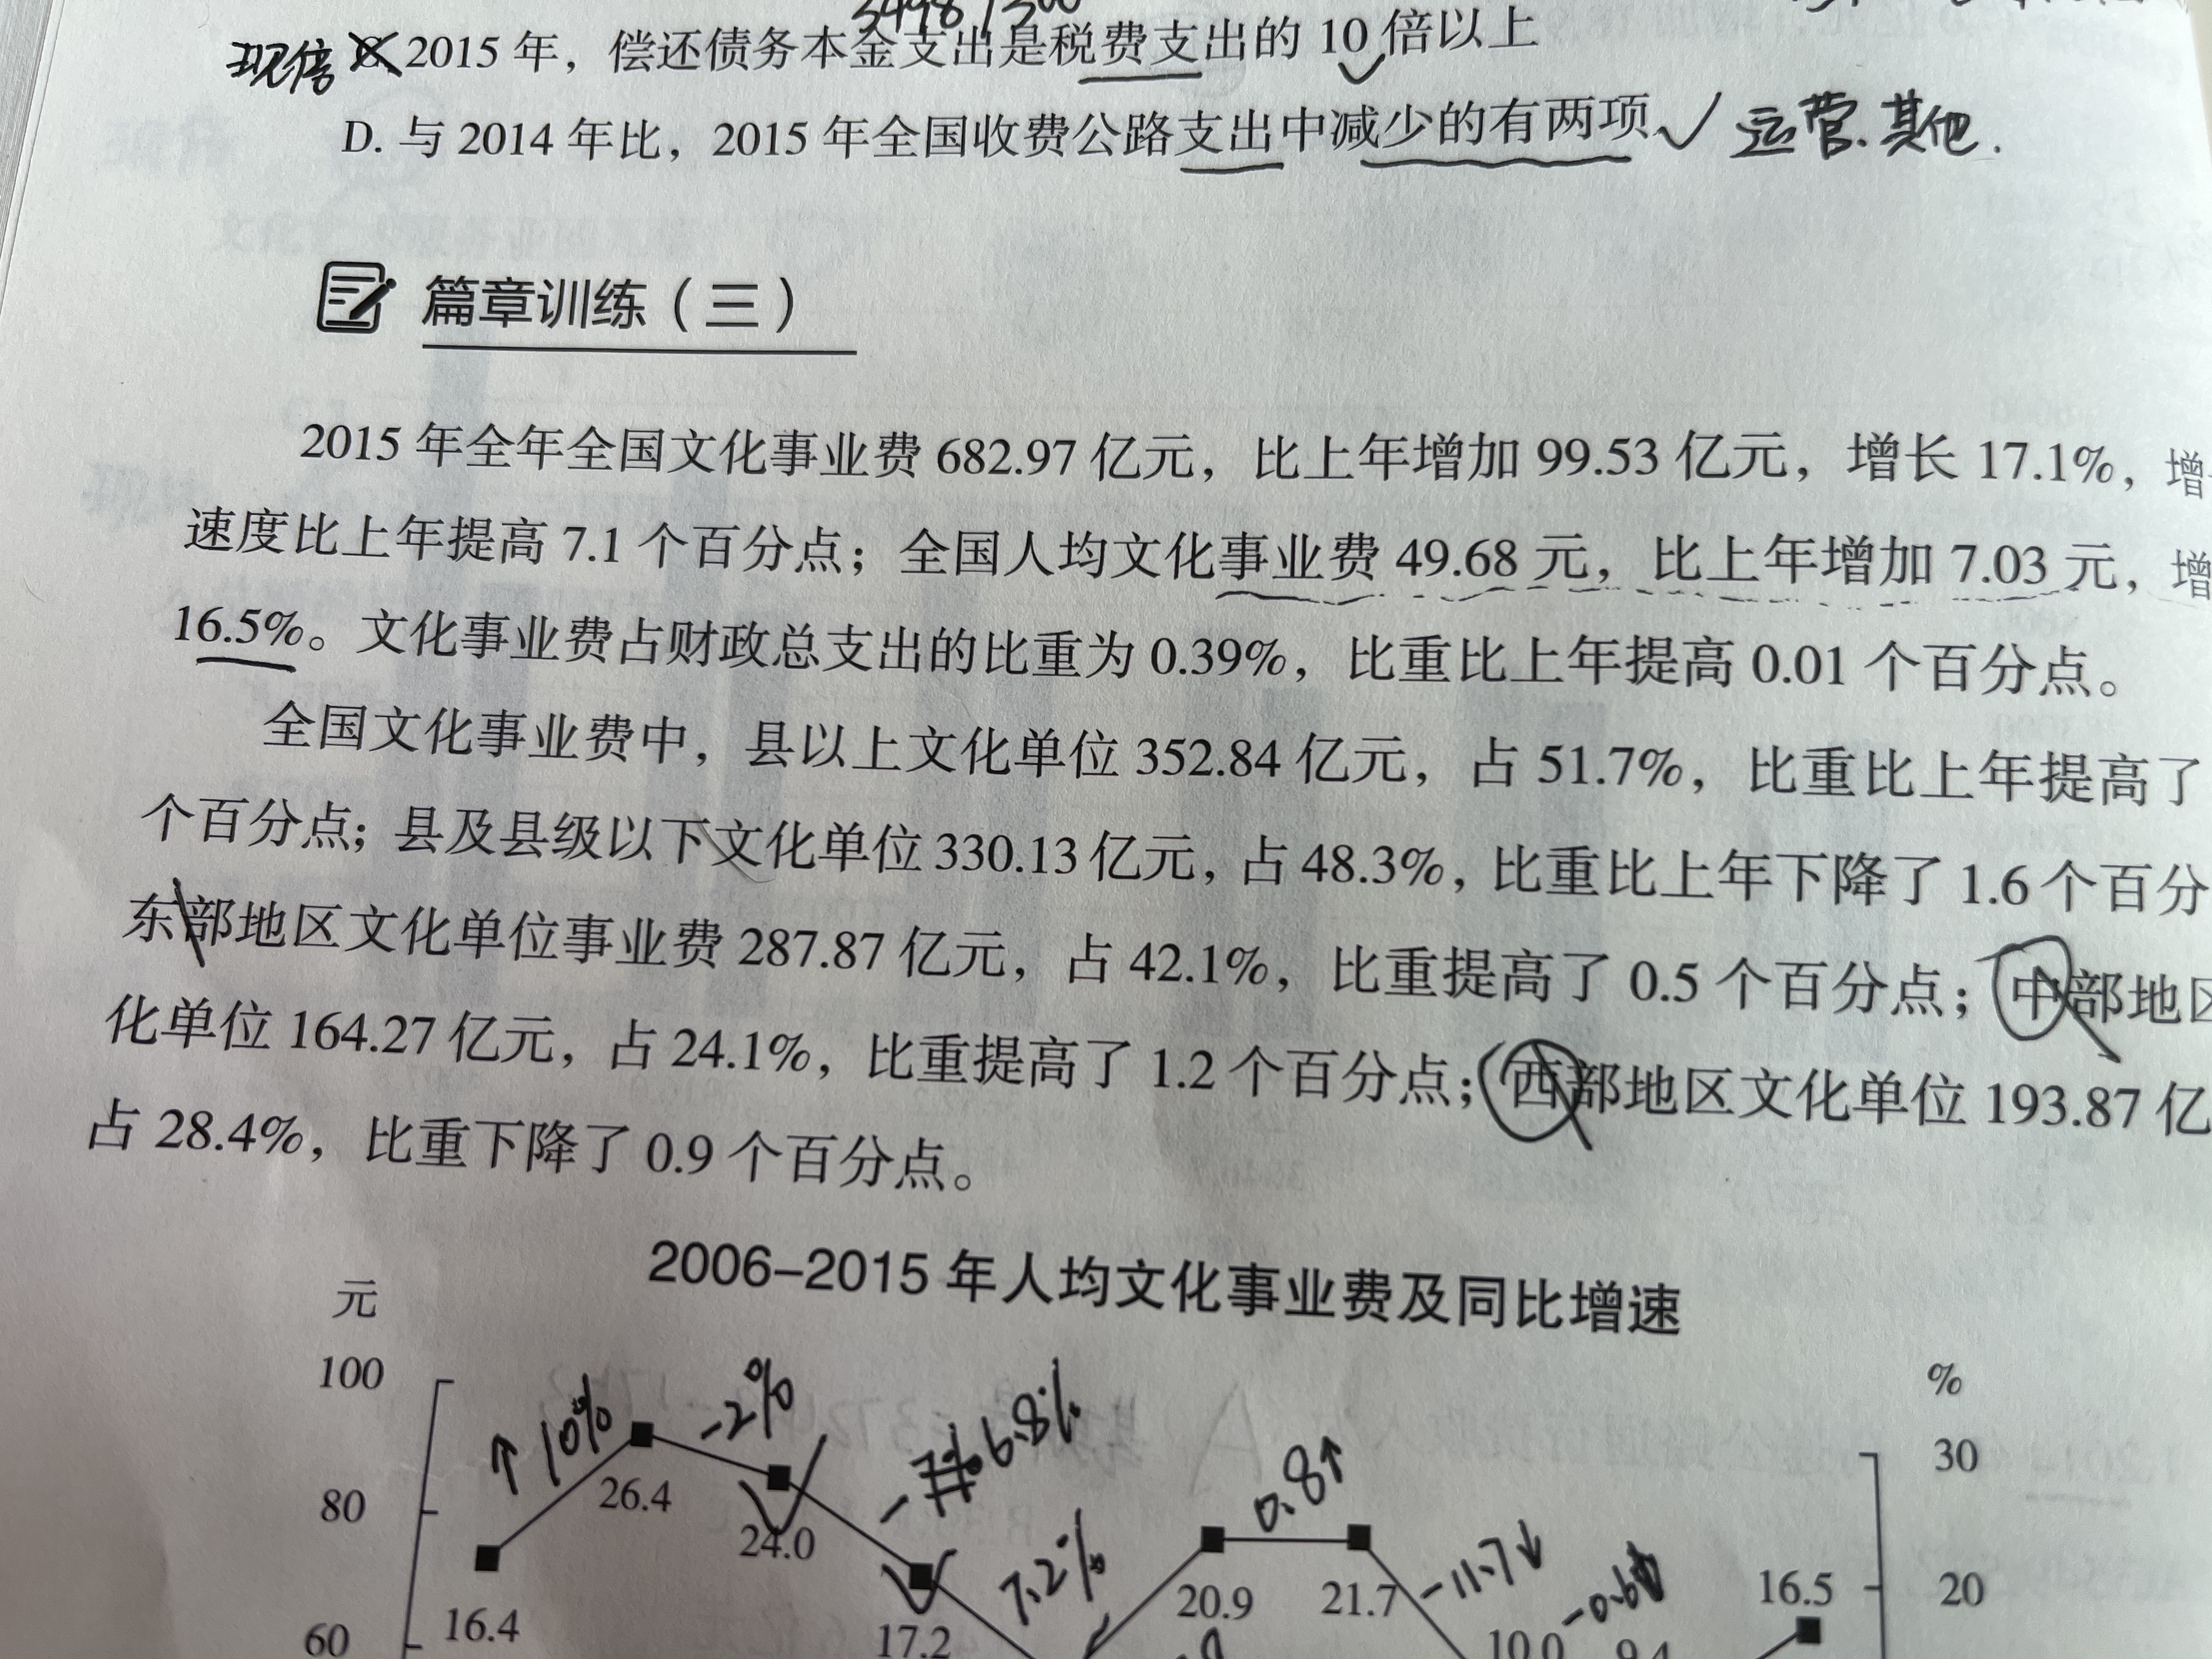 3498 / 300
现倍 C. 2015 年，偿还债务本金支出是税费支出的 10 倍以上
D. 与 2014 年比，2015 年全国收费公路支出中减少的有两项 运营.其他.
篇章训练（三）
2015 年全年全国文化事业费 682.97 亿元，比上年增加 99.53 亿元，增长 17.1%，增
速度比上年提高 7.1 个百分点；全国人均文化事业费 49.68 元，比上年增加 7.03 元，增
16.5%。文化事业费占财政总支出的比重为 0.39%，比重比上年提高 0.01 个百分点。
全国文化事业费中，县以上文化单位 352.84 亿元，占 51.7%，比重比上年提高了
个百分点；县及县级以下文化单位 330.13 亿元，占 48.3%，比重比上年下降了 1.6 个百分
东部地区文化单位事业费 287.87 亿元，占 42.1%，比重提高了 0.5 个百分点；中部地区
化单位 164.27 亿元，占 24.1%，比重提高了 1.2 个百分点；西部地区文化单位 193.87 亿
占 28.4%，比重下降了 0.9 个百分点。
2006-2015 年人均文化事业费及同比增速
元
100
%
↑ 10%
-2%
6.8%
0.8↑
30
80
26.4
24.0
7.2%
-11.7↓
-0.6↓
20.9
21.7
16.5
20
60
16.4
17.2
10.0
9.4